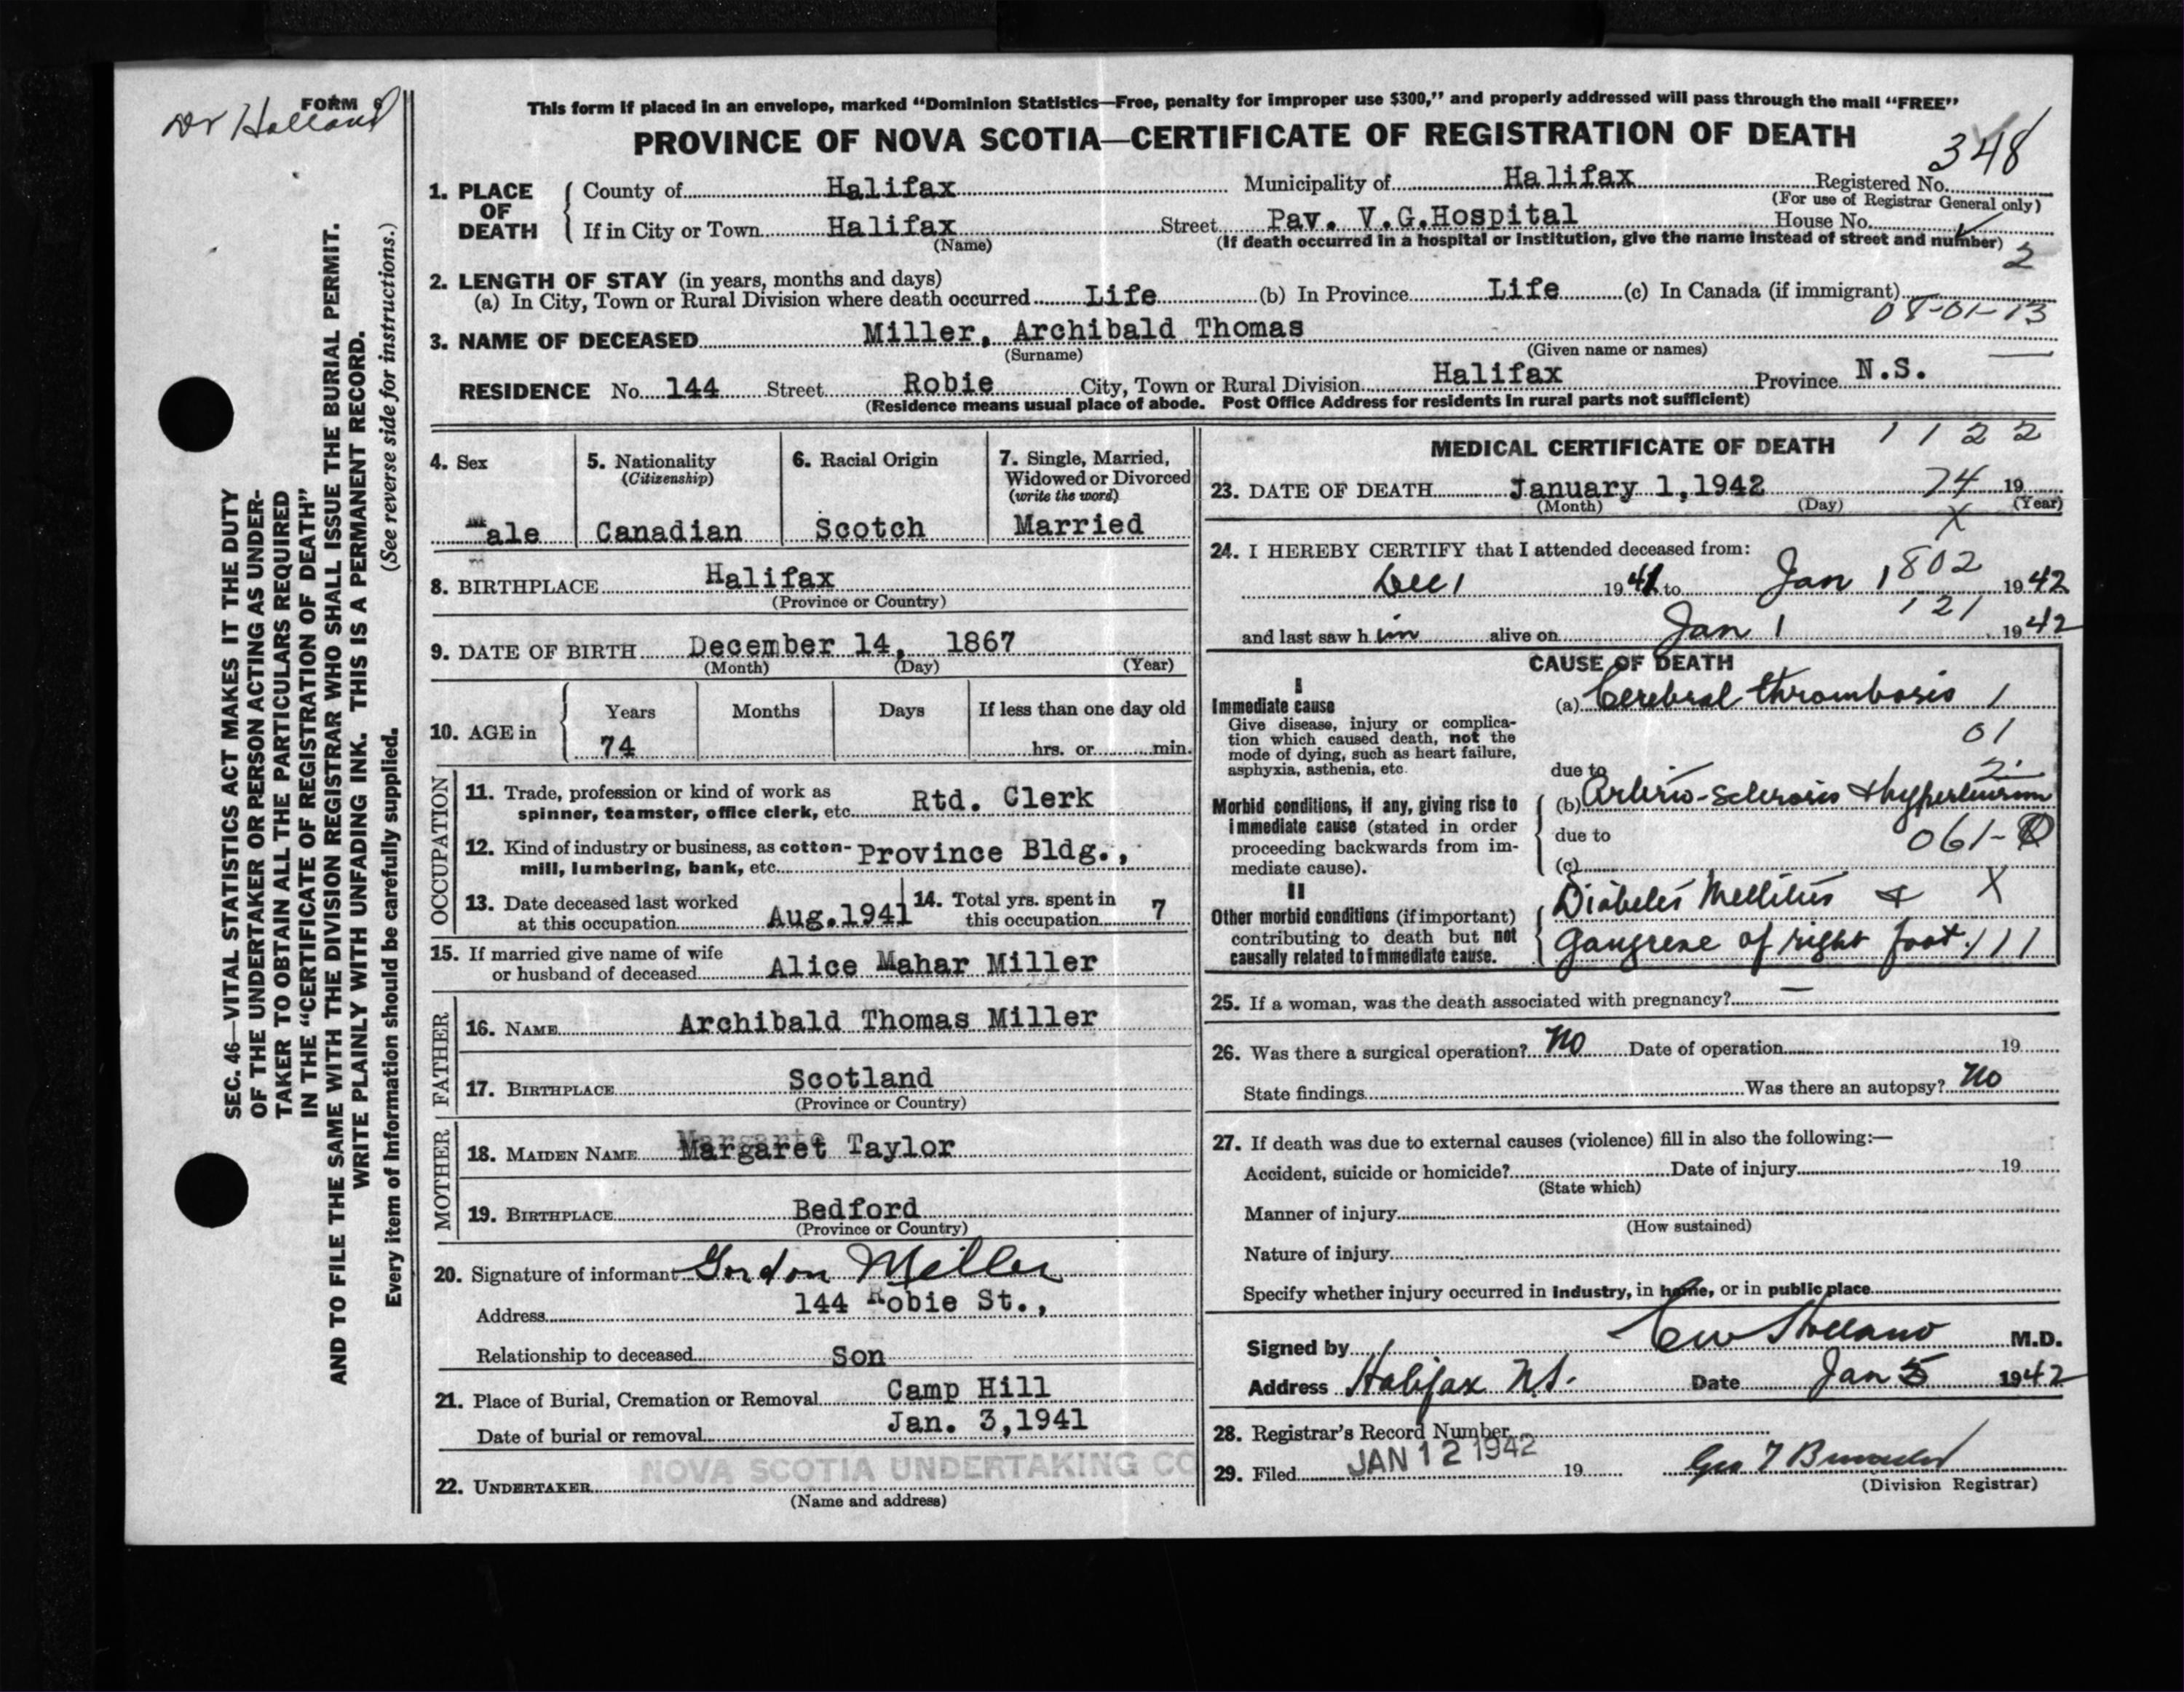 FORM 6
Dr Holland
SEC. 46—VITAL STATISTICS ACT MAKES IT THE DUTY
OF THE UNDERTAKER OR PERSON ACTING AS UNDER-
TAKER TO OBTAIN ALL THE PARTICULARS REQUIRED
IN THE "CERTIFICATE OF REGISTRATION OF DEATH"
AND TO FILE THE SAME WITH THE DIVISION REGISTRAR WHO SHALL ISSUE THE BURIAL PERMIT.
WRITE PLAINLY WITH UNFADING INK. THIS IS A PERMANENT RECORD.
Every item of information should be carefully supplied. (See reverse side for instructions.)
This form if placed in an envelope, marked "Dominion Statistics—Free, penalty for improper use $300," and properly addressed will pass through the mail "FREE"
PROVINCE OF NOVA SCOTIA—CERTIFICATE OF REGISTRATION OF DEATH
348
1. PLACE OF DEATH County of Halifax Municipality of Halifax Registered No.
(For use of Registrar General only)
If in City or Town Halifax Street Pav. V.G.Hospital House No.
(Name) (If death occurred in a hospital or institution, give the name instead of street and number)
2
2. LENGTH OF STAY (in years, months and days)
(a) In City, Town or Rural Division where death occurred Life (b) In Province Life (c) In Canada (if immigrant)
08-01-13
3. NAME OF DECEASED Miller, Archibald Thomas
(Surname) (Given name or names)
RESIDENCE No. 144 Street Robie City, Town or Rural Division Halifax Province N.S.
(Residence means usual place of abode. Post Office Address for residents in rural parts not sufficient)
4. Sex 5. Nationality 6. Racial Origin 7. Single, Married,
(Citizenship) Widowed or Divorced
(write the word)
Male Canadian Scotch Married
8. BIRTHPLACE Halifax
(Province or Country)
9. DATE OF BIRTH December 14, 1867
(Month) (Day) (Year)
10. AGE in Years Months Days If less than one day old
74 hrs. or min.
OCCUPATION
11. Trade, profession or kind of work as
spinner, teamster, office clerk, etc. Rtd. Clerk
12. Kind of industry or business, as cotton-
mill, lumbering, bank, etc. Province Bldg.,
13. Date deceased last worked
at this occupation Aug.1941
14. Total yrs. spent in
this occupation 7
15. If married give name of wife
or husband of deceased Alice Mahar Miller
FATHER
16. NAME Archibald Thomas Miller
17. BIRTHPLACE Scotland
(Province or Country)
MOTHER
18. MAIDEN NAME Margaret Taylor
19. BIRTHPLACE Bedford
(Province or Country)
20. Signature of informant Gordon Miller
Address 144 Robie St.,
Relationship to deceased Son
21. Place of Burial, Cremation or Removal Camp Hill
Date of burial or removal Jan. 3,1941
22. UNDERTAKER NOVA SCOTIA UNDERTAKING CO
(Name and address)
MEDICAL CERTIFICATE OF DEATH 1 1 2 2
23. DATE OF DEATH January 1,1942 74 19
(Month) (Day) (Year)
X
24. I HEREBY CERTIFY that I attended deceased from:
Dec 1 1941 to Jan 1 802 1942
121
and last saw h im alive on Jan 1 1942
CAUSE OF DEATH
I
Immediate cause
Give disease, injury or complica-
tion which caused death, not the
mode of dying, such as heart failure,
asphyxia, asthenia, etc.
(a) Cerebral thrombosis 1
01
due to 2
Morbid conditions, if any, giving rise to
immediate cause (stated in order
proceeding backwards from im-
mediate cause).
(b) Arterio-sclerosis & hypertension
due to 061-0
(c)
II
Other morbid conditions (if important)
contributing to death but not
causally related to immediate cause.
Diabetes Mellitus & X
Gangrene of right foot. 111
25. If a woman, was the death associated with pregnancy? —
26. Was there a surgical operation? No Date of operation 19
State findings Was there an autopsy? No
27. If death was due to external causes (violence) fill in also the following:—
Accident, suicide or homicide? Date of injury 19
(State which)
Manner of injury
(How sustained)
Nature of injury
Specify whether injury occurred in industry, in home, or in public place
Signed by C W Holland M.D.
Address Halifax N.S. Date Jan 5 1942
28. Registrar's Record Number
29. Filed JAN 12 1942 19
(Division Registrar)